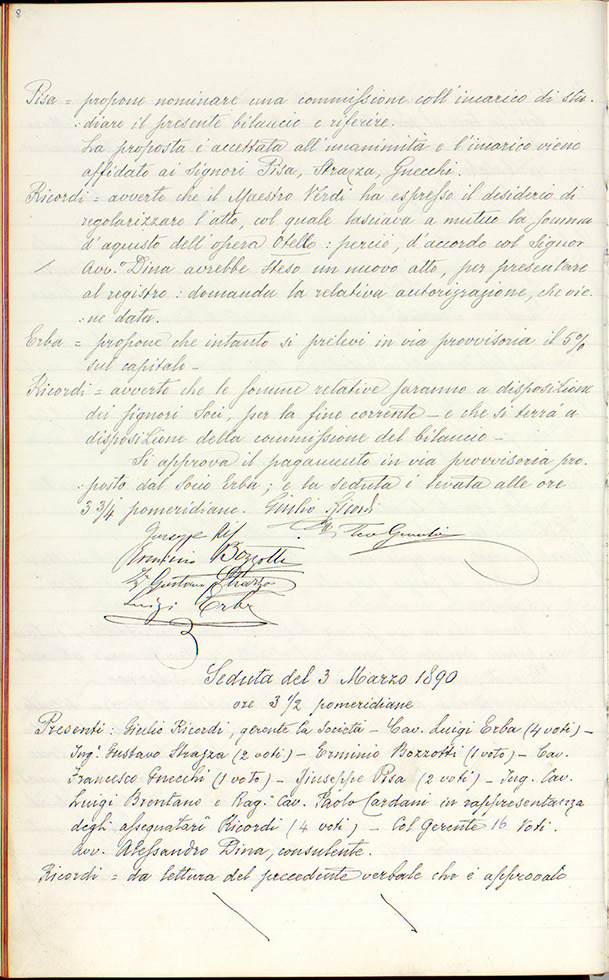 8
Pisa = propone nominare una commissione coll'incarico di stu-
:diare il presente bilancio e riferire.
La proposta è accettata all'unanimità e l'incarico viene
affidato ai Signori Pisa, Strazza, Gnecchi.
Ricordi = avverte che il Maestro Verdi ha espresso il desiderio di
regolarizzare l'atto, col quale lasciava a mutuo la somma
d'aquisto dell'opera Otello: perciò, d'accordo col Signor
Avv.º Dina avrebbe steso un nuovo atto, per presentare
al registro: domanda la relativa autorizzazione, che vie-
:ne data.
Erba = propone che intanto si prelevi in via provvisoria il 5%
sul capitale –
Ricordi = avverte che le somme relative saranno a disposizione
dei signori Soci, per la fine corrente – e che si terrà a
disposizione della commissione del bilancio –
Si approva il pagamento in via provvisoria pro-
:posto dal Socio Erba; e la seduta è levata alle ore
3 3/4 pomeridiane. Giulio Ricordi
Erminio Bozzotti
Gustavo Strazza
Luigi Erba
Seduta del 3 Marzo 1890
ore 3 1/2 pomeridiane
Presenti: Giulio Ricordi, gerente la Società – Cav. Luigi Erba (4 voti) –
Ing. Gustavo Strazza (2 voti) – Erminio Bozzotti (1 voto) – Cav.
Francesco Gnecchi (1 voto) – Giuseppe Pisa (2 voti) – Ing. Cav.
Luigi Brentano e Rag. Cav. Paolo Cardani in rappresentanza
degli assegnatarî Ricordi (4 voti) – Col Gerente 16 Voti.
Avv. Alessandro Dina, consulente.
Ricordi = dà lettura del precedente verbale che è approvato